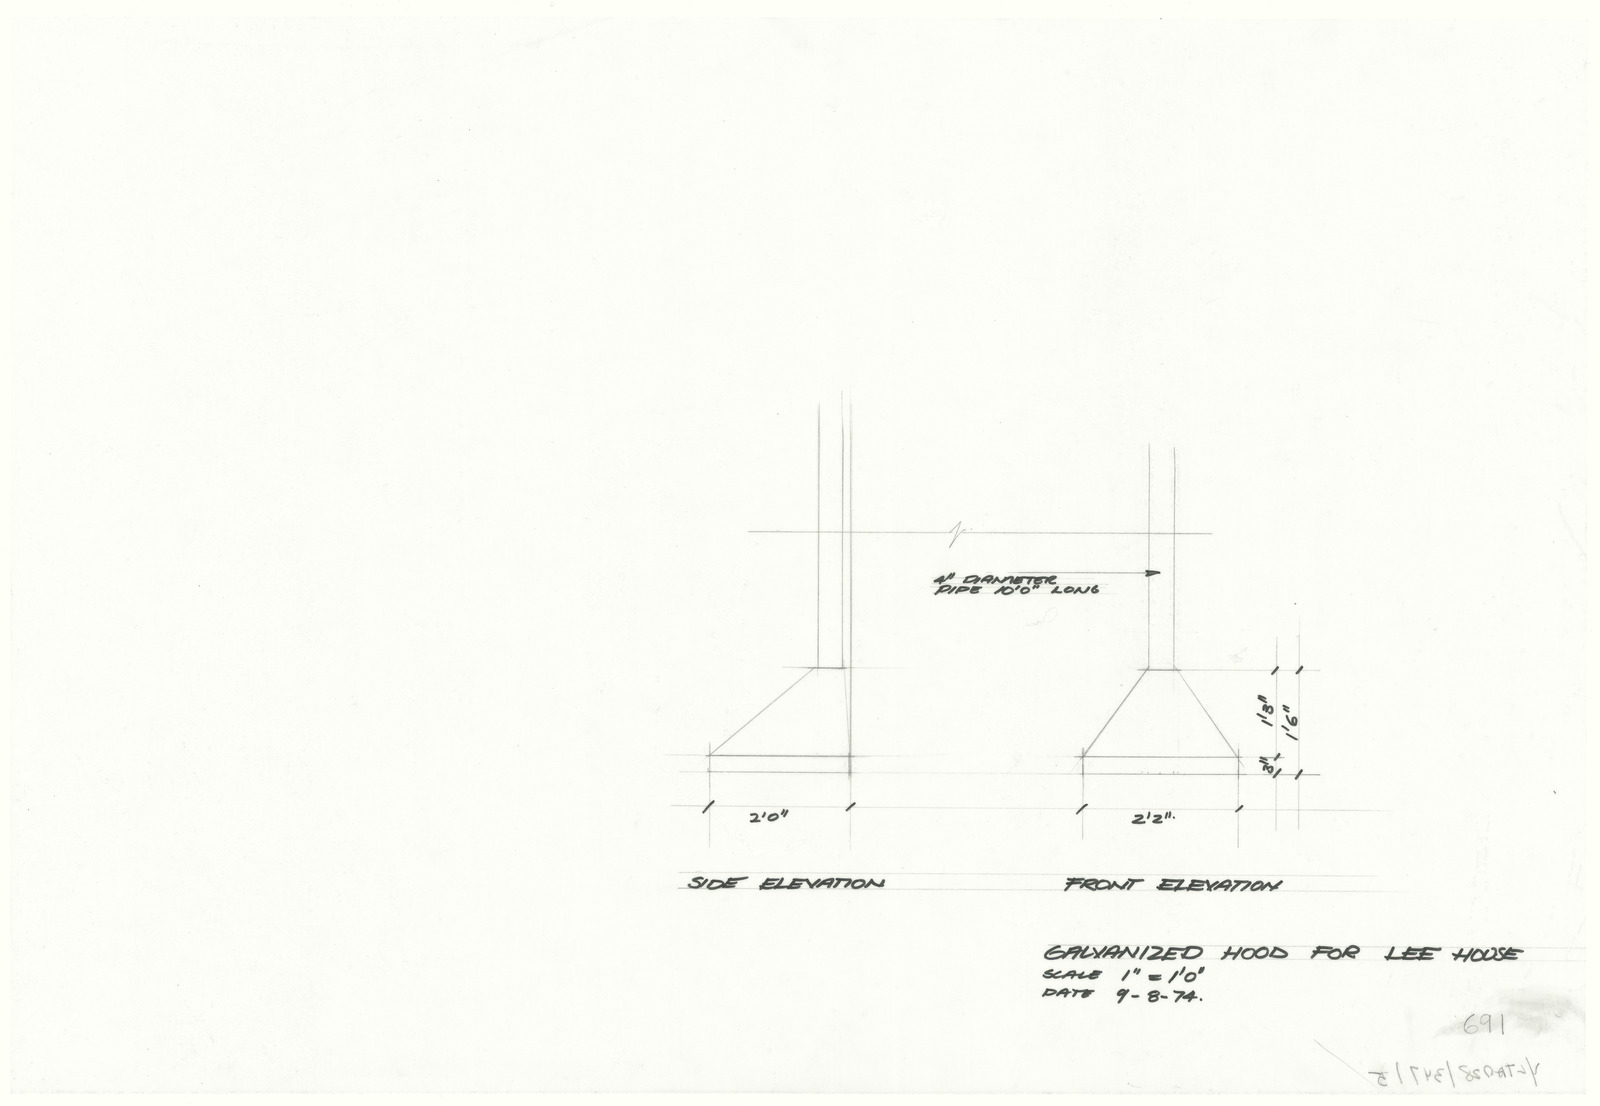 4" DIAMETER
PIPE 10'0" LONG
1'3"
1'6"
3"
2'0"
2'2".
SIDE ELEVATION
FRONT ELEVATION
GALVANIZED HOOD FOR LEE HOUSE
SCALE 1" = 1'0"
DATE 9-8-74.
691